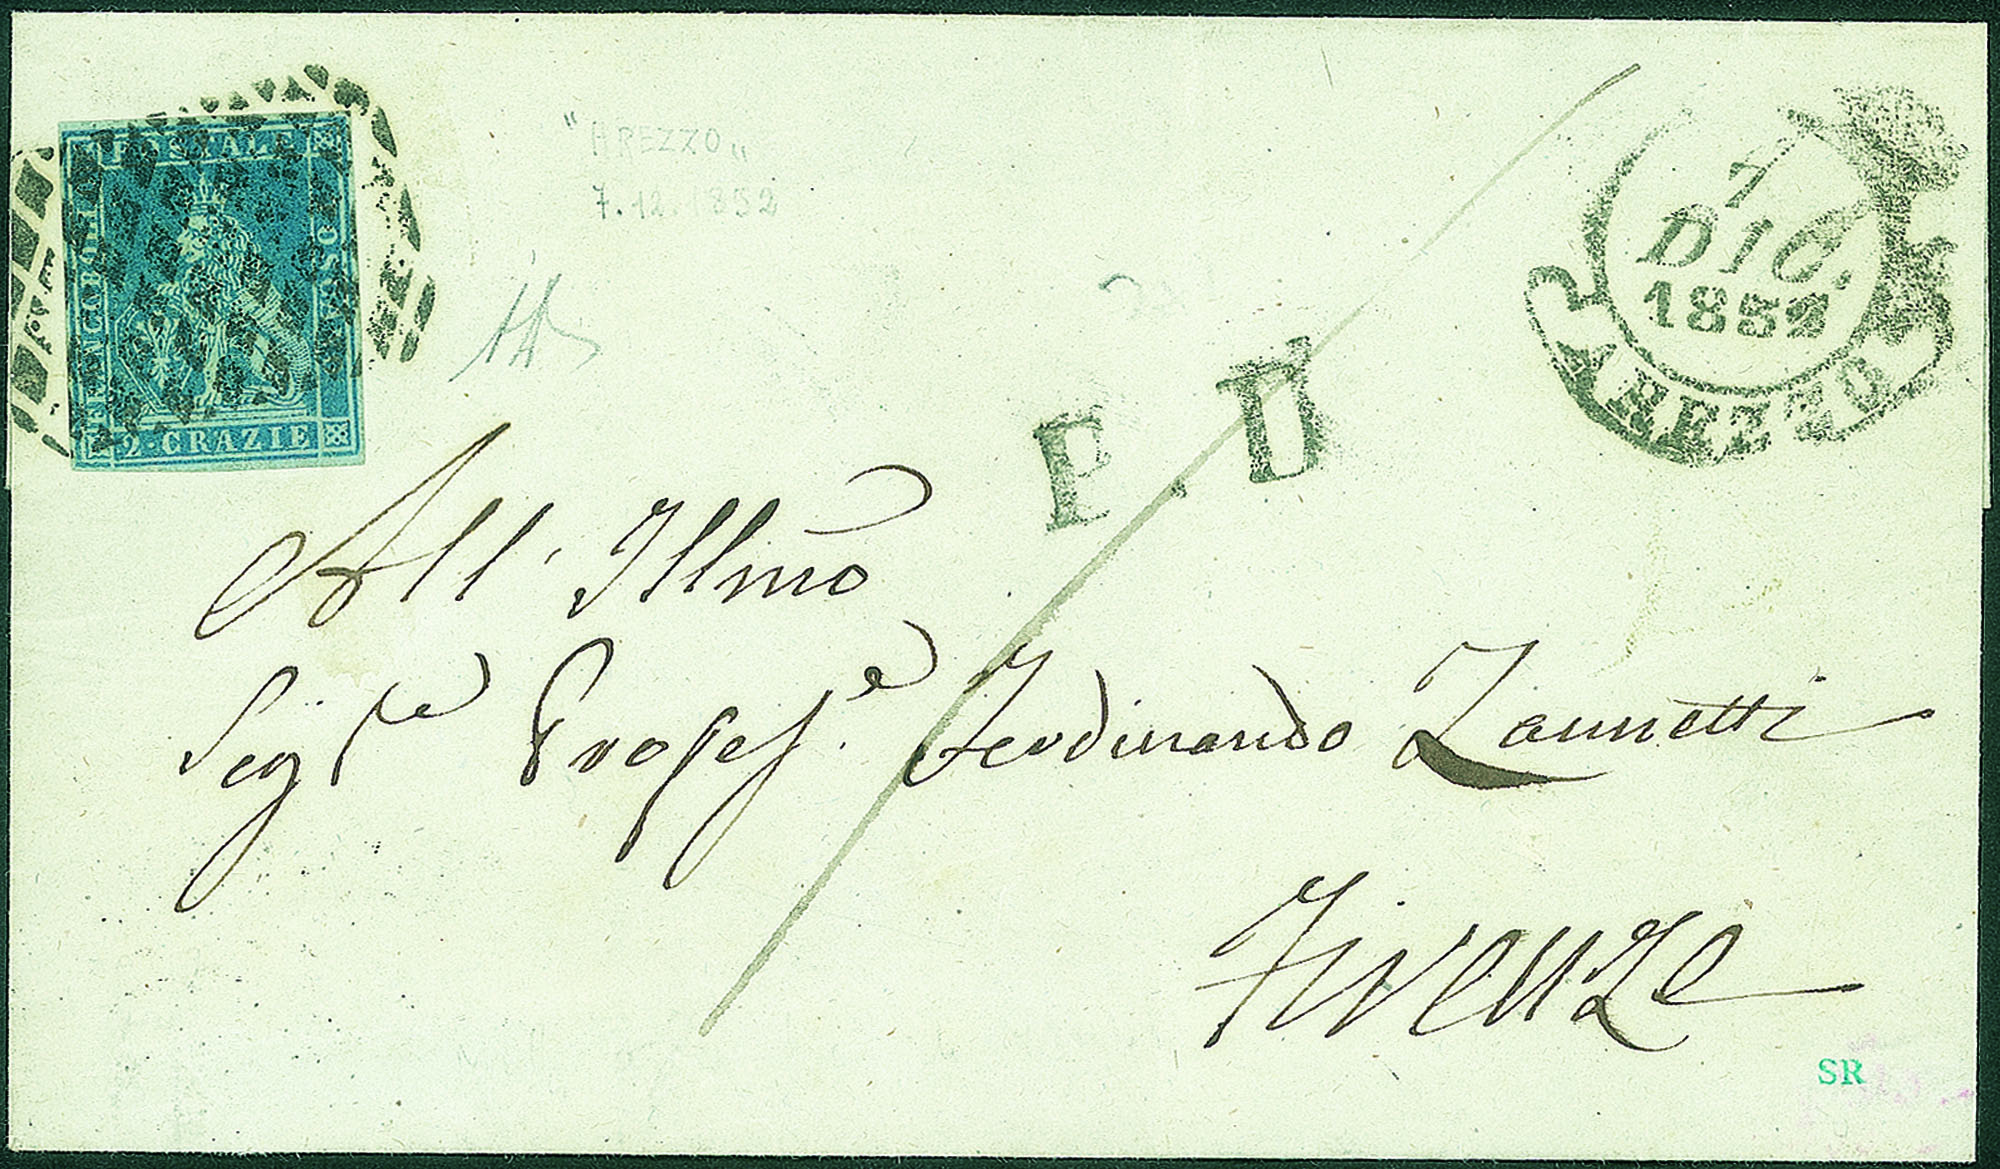 FRANCOBOLLO
POSTALE
TOSCANO
2·CRAZIE
"AREZZO"
7.12.1852
7
DIC.
1852
AREZZO
P.D
All' Illmo
Sigre Profese Ferdinando Zannetti
Firenze
SR